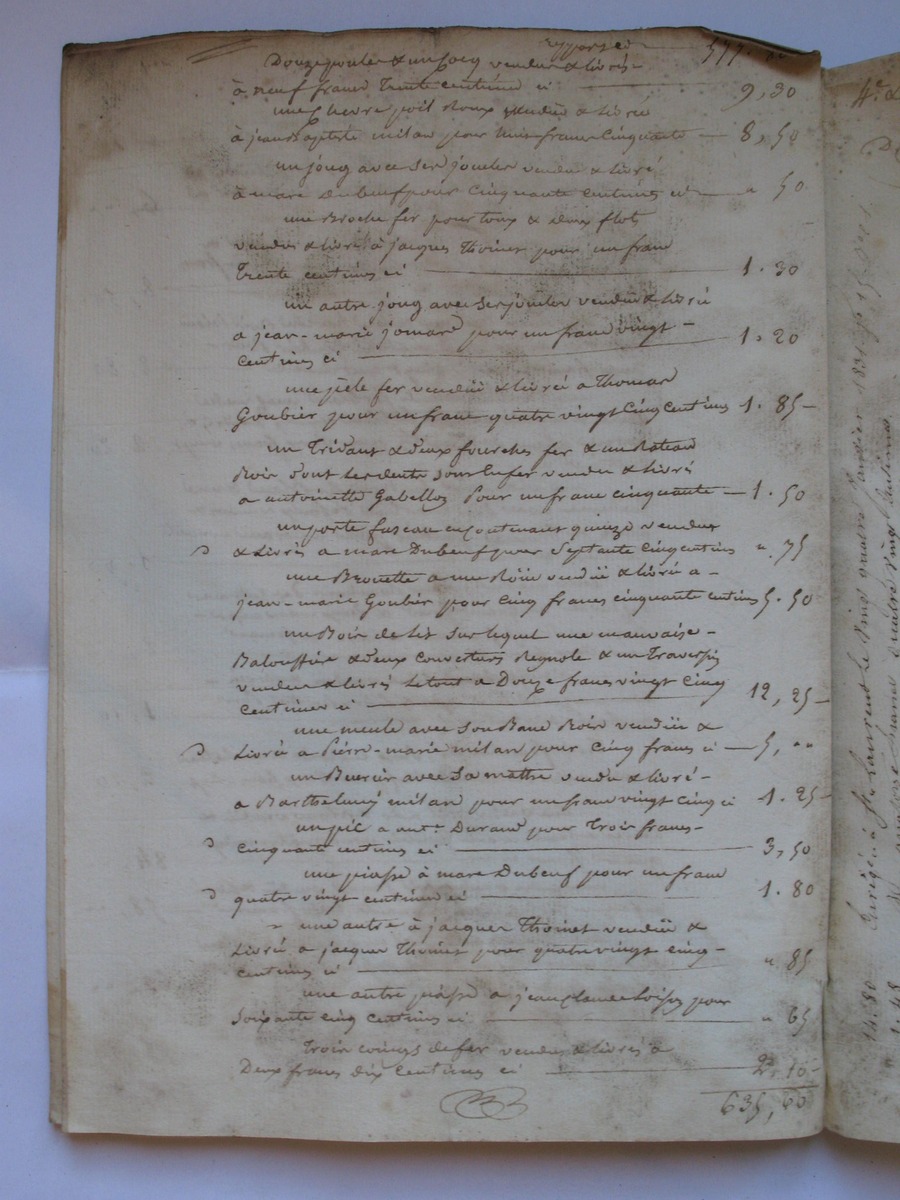 Report ci 577.
Douze poules & un Cocq vendus & livrés
à neuf francs Trente centimes ci 9,30
une Chevre poil Roux vendue & livrée
à jean Baptiste milan pour huit francs Cinquante 8,50
un joug avec ses joucles vendu & livré
à marc Dubeuf pour Cinquante Centimes ci " 50
une Broche fer pour tour & deux flot
vendus & livré à jacques Thoinet pour un franc
Trente centimes ci 1.30
un autre joug avec ses joucles vendu & livré
a jean-marie jomard pour un franc vingt
centimes ci 1.20
une pèle fer vendüe & livrée a Thomas
Goubier pour un franc quatre vingt Cinq Centimes 1.85
un Tridant & deux fourches fer & un Rateau
Bois dont les dents sont en fer vendu & livré
a antoinette Gabelloz Pour un franc cinquante 1.50
un porte fuseau en contenant quinze vendus
& Livrés a marc Dubeuf pour Septante Cinq centimes " 75
une Brouette a une Roüe vendüe & livrée a
jean-marie Goubier pour Cinq francs cinquante centimes 5.50
un Bois de Lit sur lequel une mauvaise
Balouffière & deux couvertures & un Traversin
vendus & livrés le tout a Douze francs vingt Cinq
Centimes ci 12,25
une meule avec son Banc Bois vendüe &
Livrée a Pierre-marie milan pour Cinq francs ci 5, ""
un avec Sa vendu & livré
a Barthelemy milan pour un franc vingt Cinq ci 1.25
un pic a ant.e Durand pour Trois francs
Cinquante centimes ci 3,50
une piasse à marc Dubeuf pour un franc
quatre vingt centimes ci 1.80
une autre à jacques Thoinet vendüe &
Livrée a jacques Thoinet pour quatre vingt cinq
centimes ci " 85
une autre piasse a jean Claude pour
Soixante cinq centimes ci " 65
Trois coings de fer vendus & livrés à
Deux francs dix Centimes ci 2,10
635,60